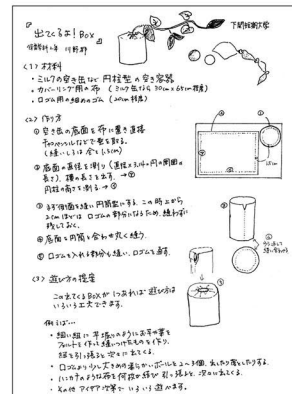 『出てくるよ！Box』
下関短期大学
保育科
(1) 材料
・ミルクの空き缶など円柱型の空き容器
・カバーリング用の布（ミルク缶なら30cm×65cm程度）
・口ゴム用の細めのゴム（20cm程度）
(2) 作り方
① 空き缶の底面を布に置き直接
チャコペンシルなどで型を取る。
（縫いしろは 1.5cm）
② 底面の直径を測り（直径×3.14＝円の周囲の
長さ）、横の長さを出す。→
円柱の高さを測る→
③ まず側面を縫い円筒型にする。この時上から
2cmほどは口ゴムの部分になるため、縫わずに
残しておく。
④ 底面と円筒を合わせ丸く縫う。
⑤ 口ゴムを入れる部分も縫い、口ゴムを通す。
(3) 遊び方の提案
この出てくるBoxが1つあれば遊び方は
いろいろ工夫できます。
例えば…
・細い紐に芋掘りのようにお芋や葉を
フェルトで作って縫いつけたものを作り、
紐を引っ張ると次々に出てくる。
・口ゴムより少し大きめの柔らかいボールを2〜3個、出したり戻したりする。
・ハンカチのような布を何枚か結び引っ張ると、次々に出てくる。
・その他アイデア次第でいろいろ遊べます。